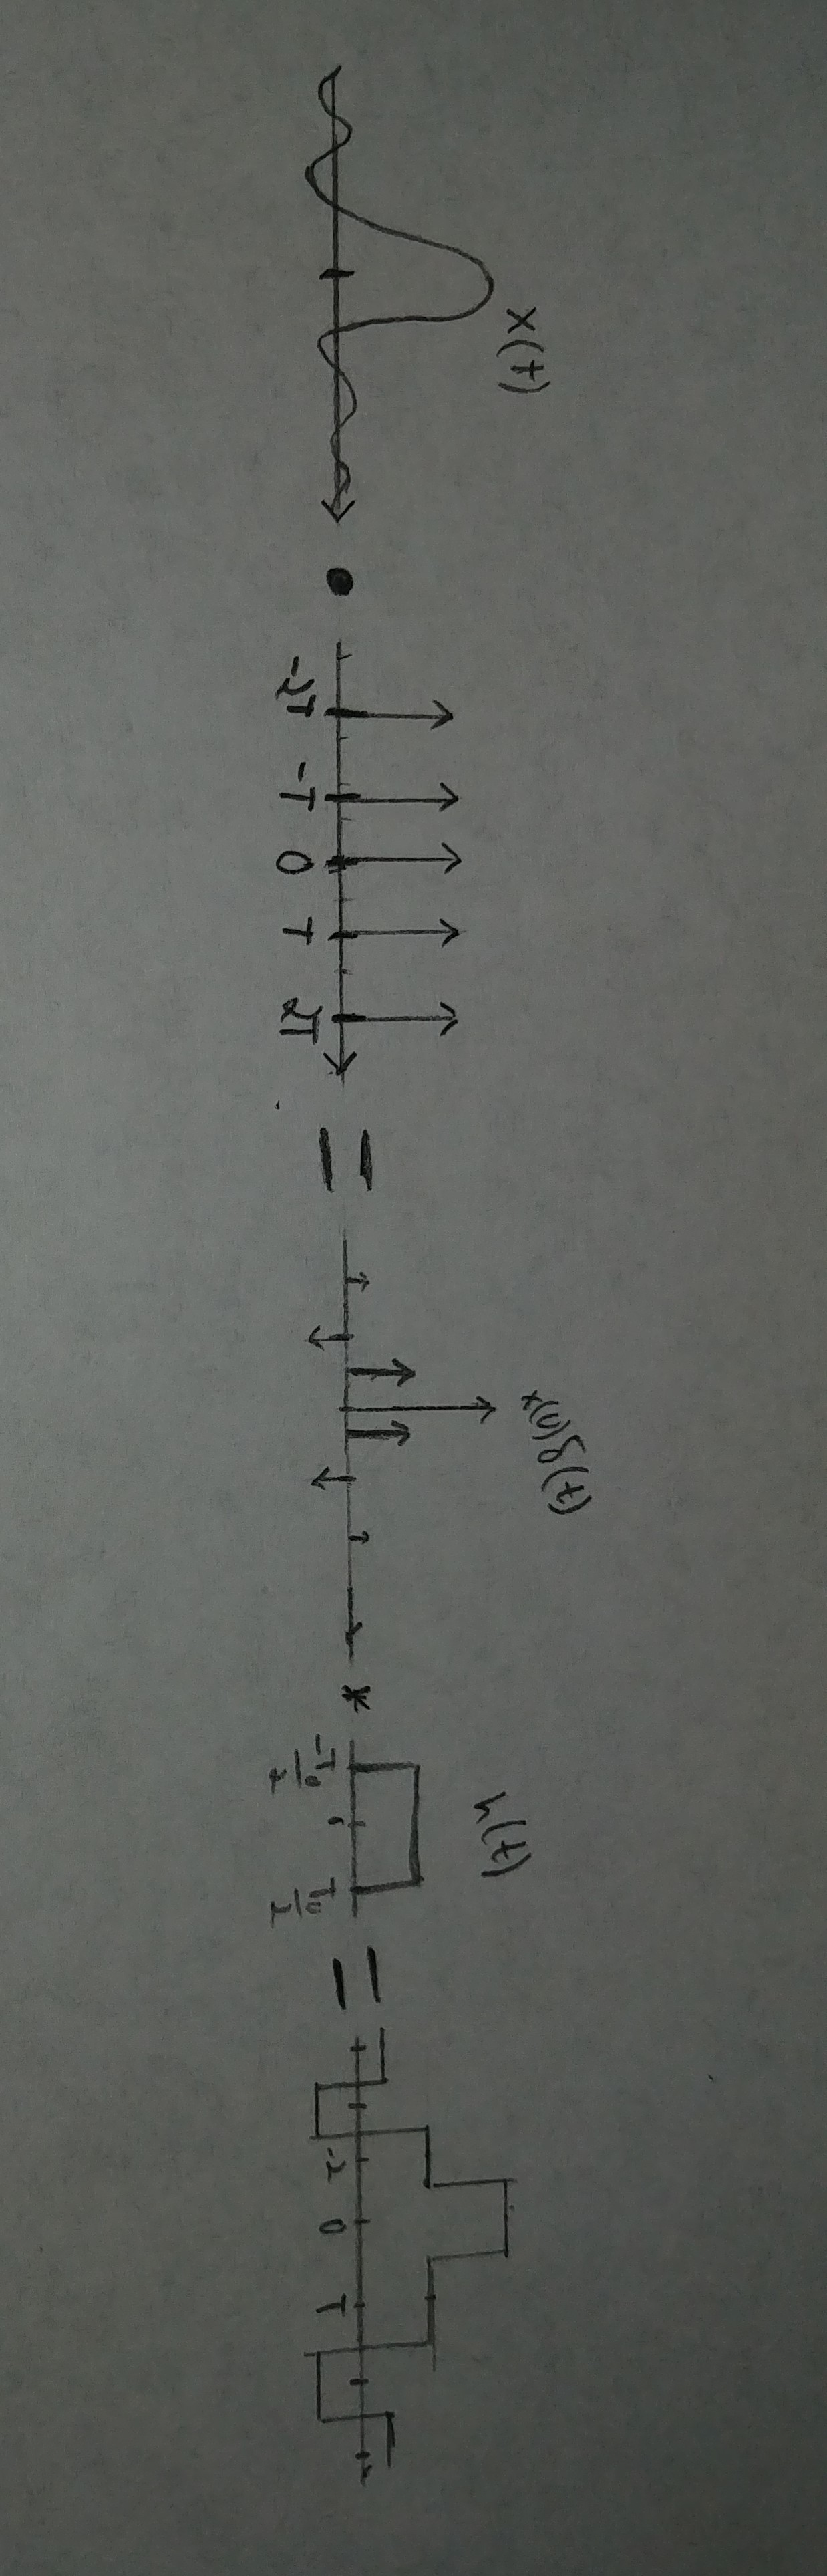 x(t)
-2T -T 0 T 2T
=
x(0)δ(t)
*
h(t)
-T0/2 0 T0/2
=
-2 0 T